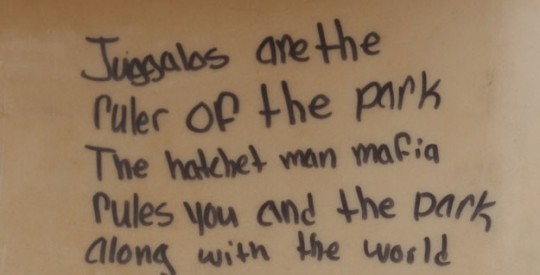 Juggalos are the
ruler of the park
The hatchet man mafia
rules you and the park
along with the world